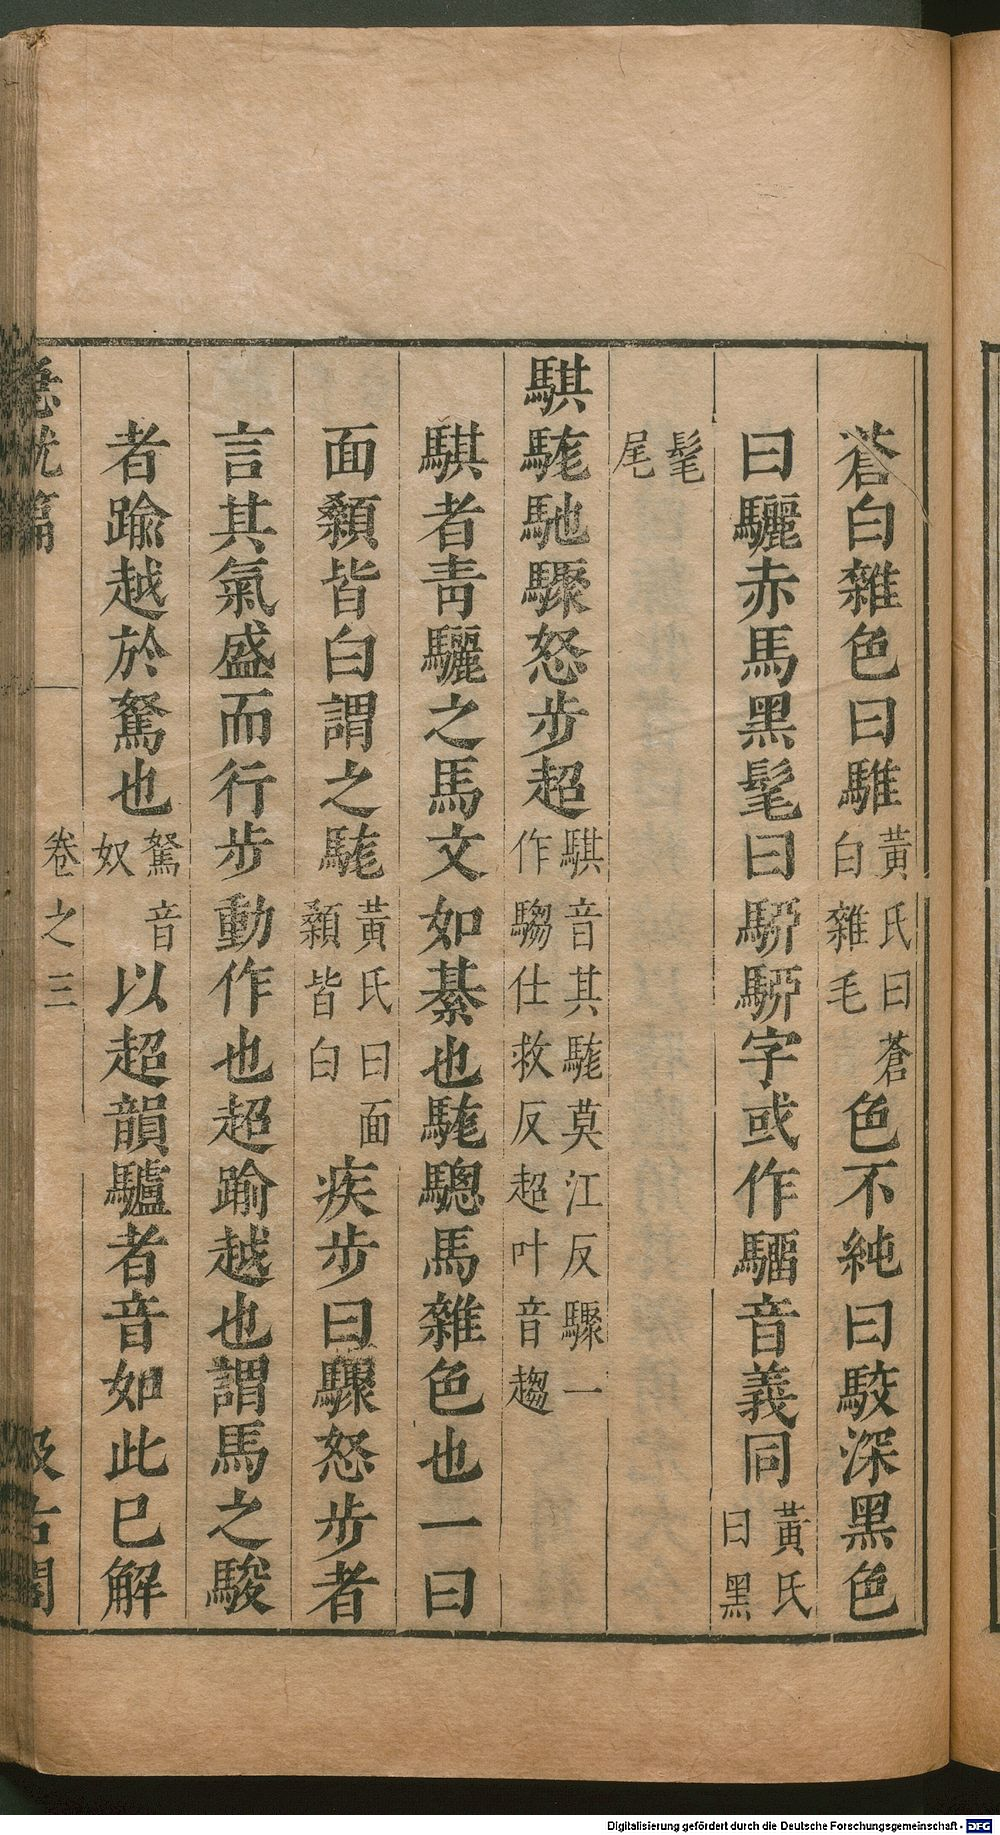 蒼白雜色曰騅黃氏曰蒼白雜毛色不純曰駮深黑色
曰驪赤馬黑髦曰駵駵字或作騮音義同黃氏曰黑
髦尾
騏駹馳驟怒步超騏音其駹莫江反驟一作騶仕救反超叶音趨
騏者靑驪之馬文如綦也駹驄馬雜色也一曰
面顙皆白謂之駹黃氏曰面顙皆白疾步曰驟怒步者
言其氣盛而行步動作也超踰越也謂馬之駿
者踰越於駑也駑音奴以超韻驢者音如此巳解
急就篇 卷之三 汲古閣
Digitalisierung gefördert durch die Deutsche Forschungsgemeinschaft - DFG